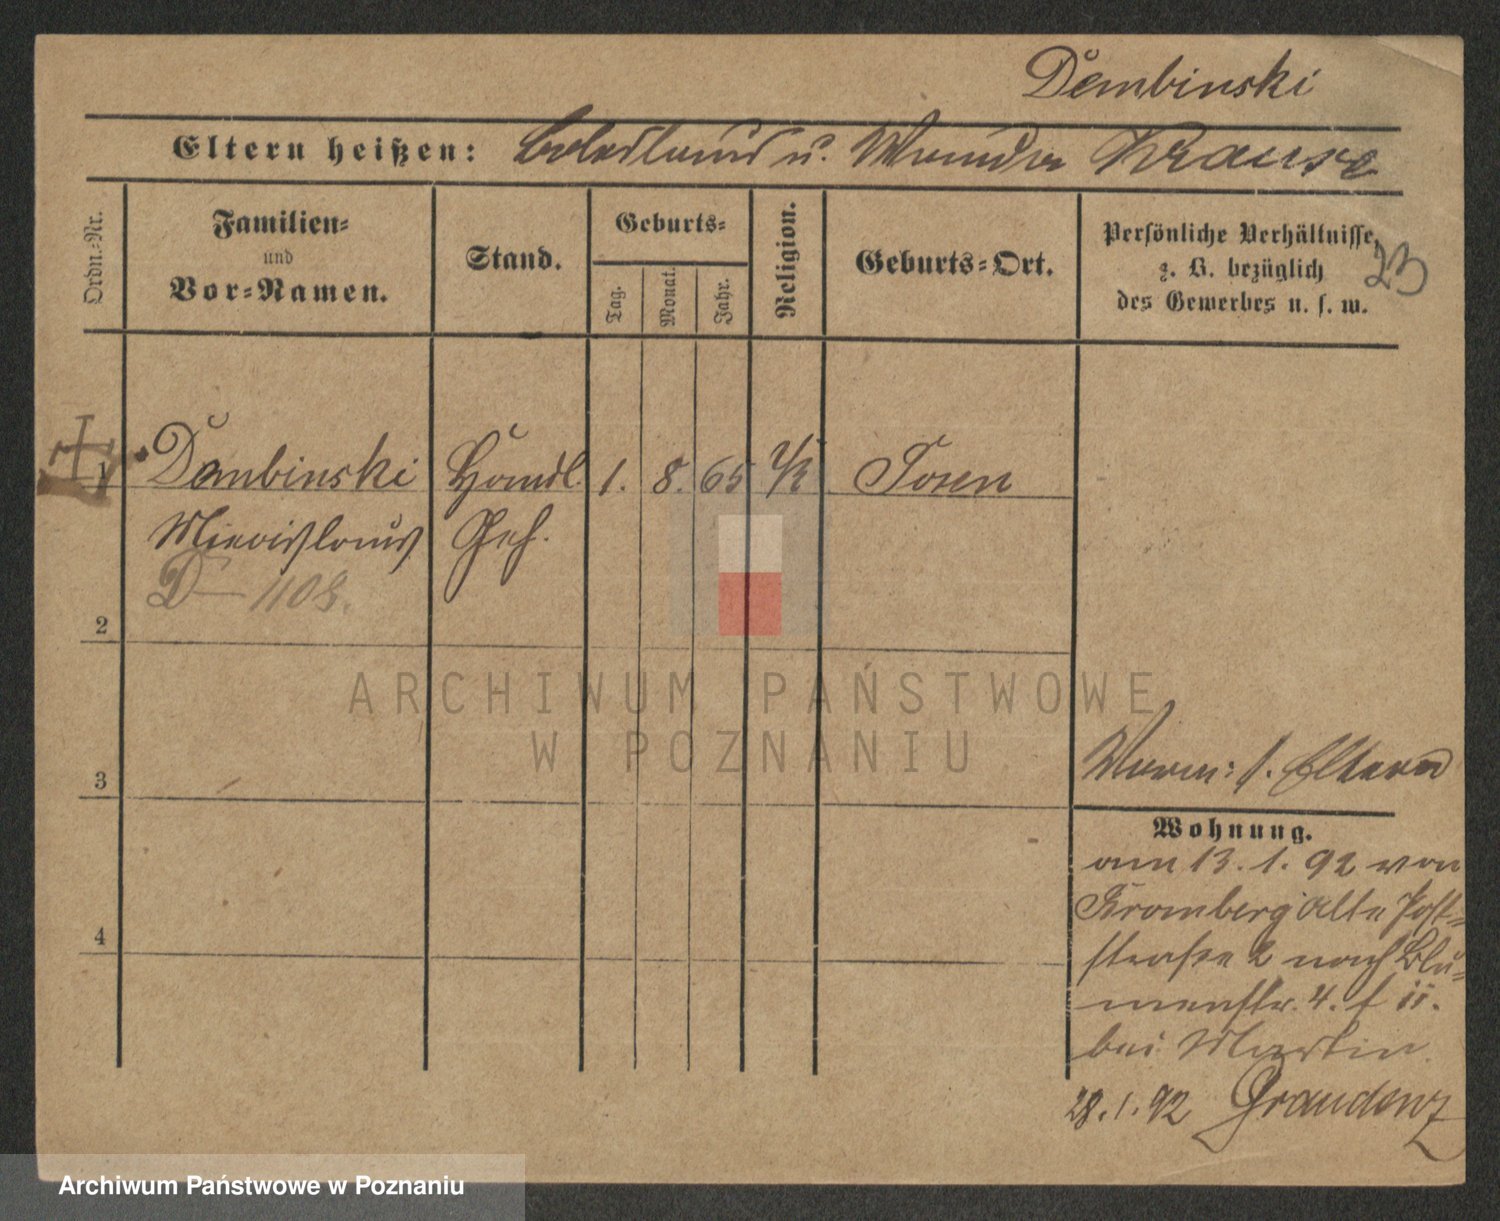 Dembinski
Eltern heißen: Boleslaus u. Wanda Krause
Ordn.-Nr.
Familien-
und
Vor-Namen.
Stand.
Geburts-
Tag.
Monat.
Jahr.
Religion.
Geburts-Ort.
Persönliche Verhältnisse,
z. B. bezüglich
des Gewerbes u. s. w.
23
1 Dembinski Handl. 1. 8. 65 Posen
Miecislaus Geh.
D-1108.
2
ARCHIWUM PAŃSTWOWE
W POZNANIU
3
s. Eltern
Wohnung.
am 13. 1. 92 von
Bromberg Alte Post-
straße 2 nach Blu-
menstr. 4.
bei Martin.
4
28. 1. 92 Graudenz
Archiwum Państwowe w Poznaniu